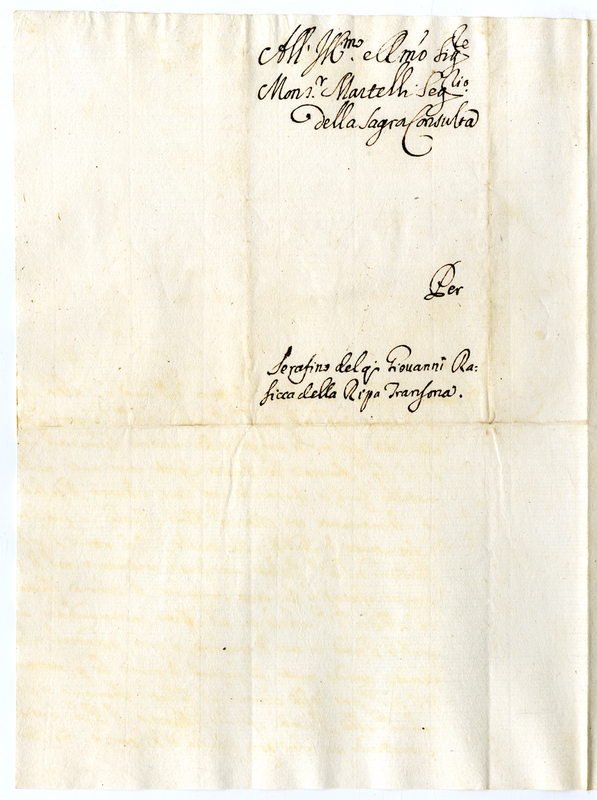 All' Ill.mo e R.mo Sig.re
Mons.r Martelli Seg.rio
della Sagra Consulta
Per
Serafino del q. Giovanni Ra=
sicca della Ripa Transona.